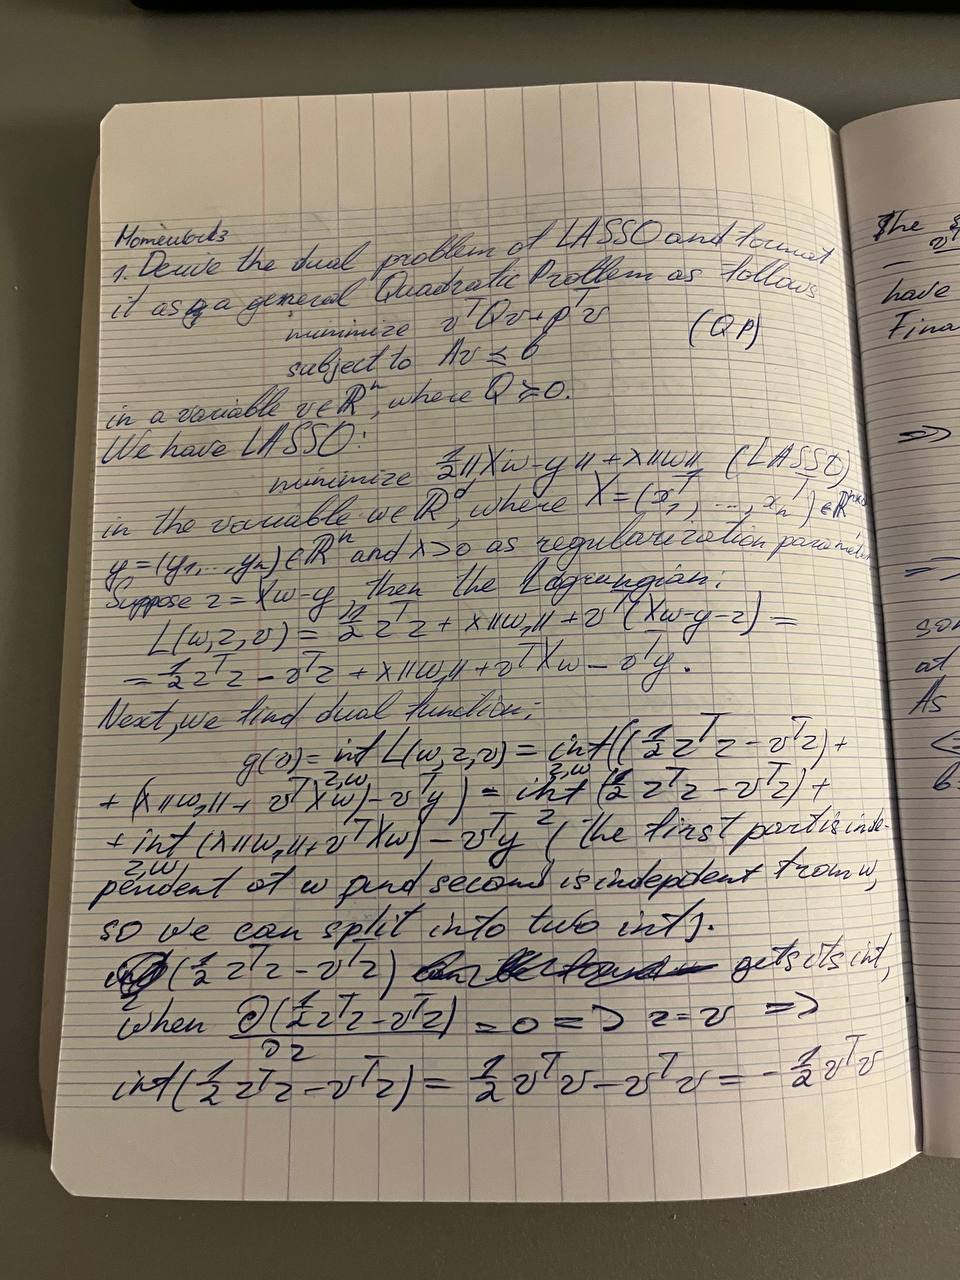 Homework3
1. Derive the dual problem of LASSO and format
it as a general Quadratic Problem as follows
minimize vᵀQv + pᵀv
(QP)
subject to Av ≤ b
in a variable v∈ℝⁿ, where Q ≽ 0.
We have LASSO:
minimize 1/2||Xw-y|| + λ||w||₁ (LASSO)
in the variable w∈ℝᵈ, where X = (x₁ᵀ, ..., xₙᵀ) ∈ ℝⁿˣᵈ
y = (y₁, .., yₙ) ∈ ℝⁿ and λ>0 as regularization parameter
Suppose z = Xw-y, then the Lagrangian:
L(w,z,v) = 1/2 zᵀz + λ||w₁|| + vᵀ(Xw-y-z) =
= 1/2 zᵀz - vᵀz + λ||w₁|| + vᵀXw - vᵀy.
Next, we find dual function:
g(v) = inf L(w,z,v) = inf((1/2 zᵀz - vᵀz) +
z,w z,w
+ (λ||w₁|| + vᵀXw) - vᵀy) = inf (1/2 zᵀz - vᵀz) +
z
+ inf (λ||w₁|| + vᵀXw) - vᵀy (the first part is inde-
z,w
pendent of w and second is indepdent from w,
so we can split into two inf).
(1/2 zᵀz - vᵀz) gets its inf,
when ∂(1/2 zᵀz - vᵀz)/∂z = 0 => z = v =>
inf(1/2 zᵀz - vᵀz) = 1/2 vᵀv - vᵀv = -1/2 vᵀv
The
vᵀ
have
Fina
=>
=>
son
at
As
<=
b